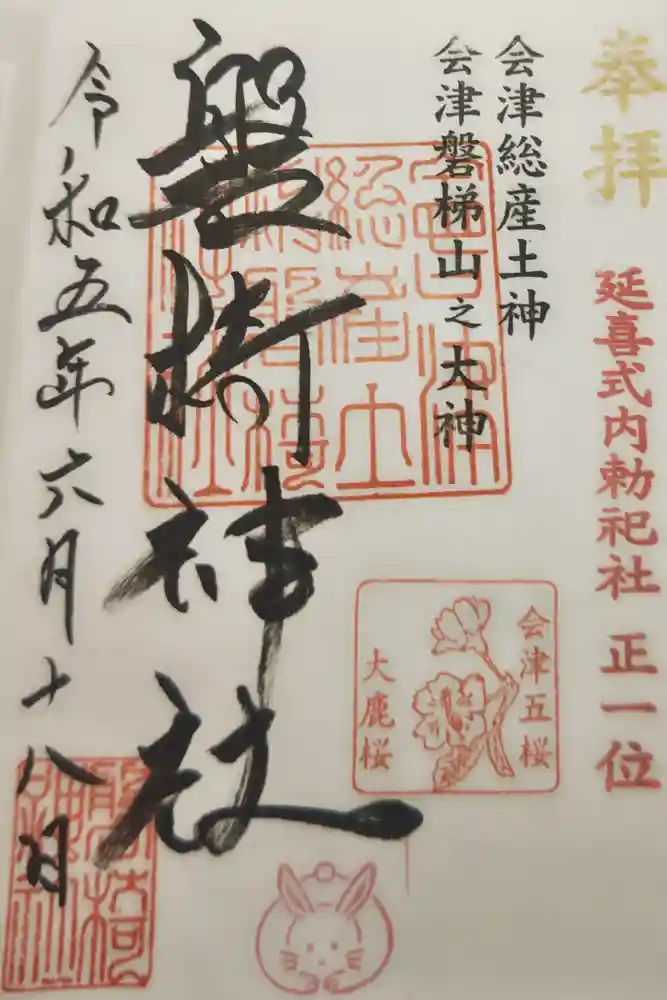 奉拝
延喜式内勅祀社 正一位
会津総産土神
会津磐梯山之大神
会津五桜
大鹿桜
磐椅神社
令和五年六月十八日